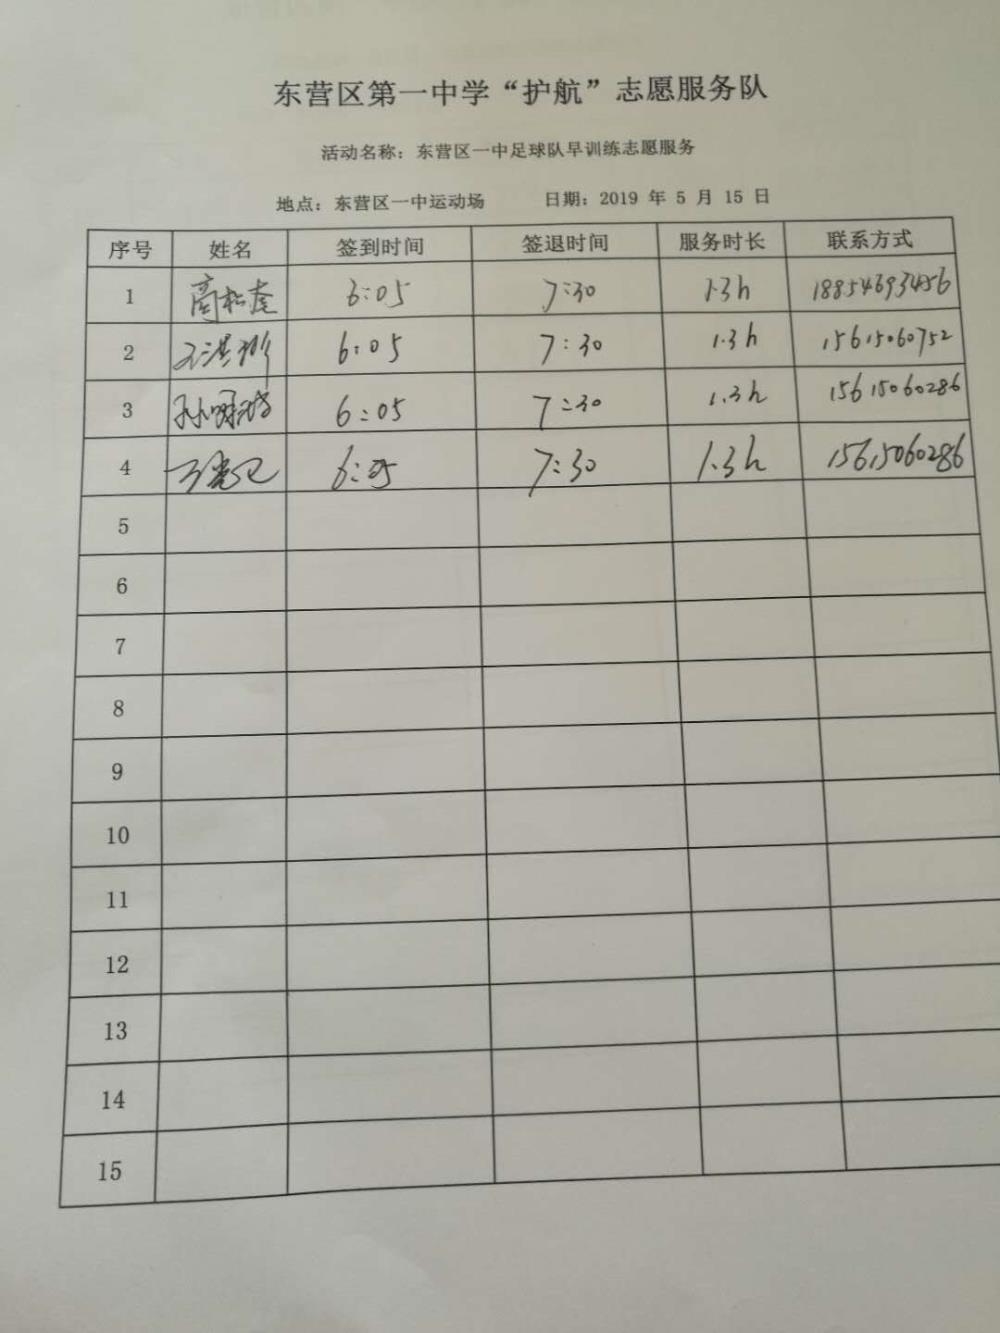 东营区第一中学“护航”志愿服务队
活动名称：东营区一中足球队早训练志愿服务
地点：东营区一中运动场 日期：2019 年 5 月 15 日
序号 姓名 签到时间 签退时间 服务时长 联系方式
1 6:05 7:30 1.3h 18854693456
2 6:05 7:30 1.3h 15615060752
3 6:05 7:30 1.3h 15615060286
4 6:05 7:30 1.3h 15615060286
5
6
7
8
9
10
11
12
13
14
15